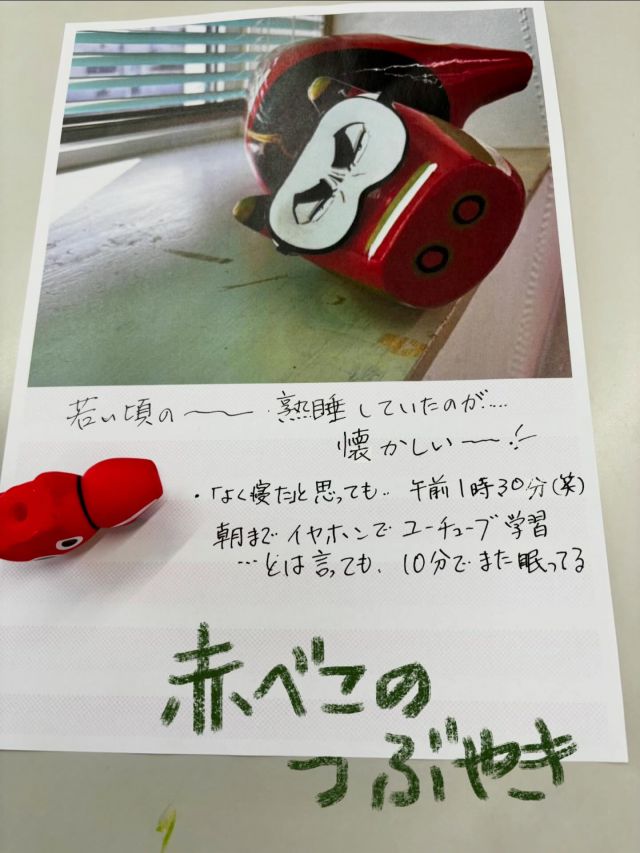 若い頃の〜〜 熟睡していたのが‥‥
懐かしい〜〜!
・「よく寝た」と思っても‥ 午前1時30分(笑)
朝までイヤホンでユーチューブ学習
…とは言っても、10分でまた眠ってる
赤べこの
つぶやき